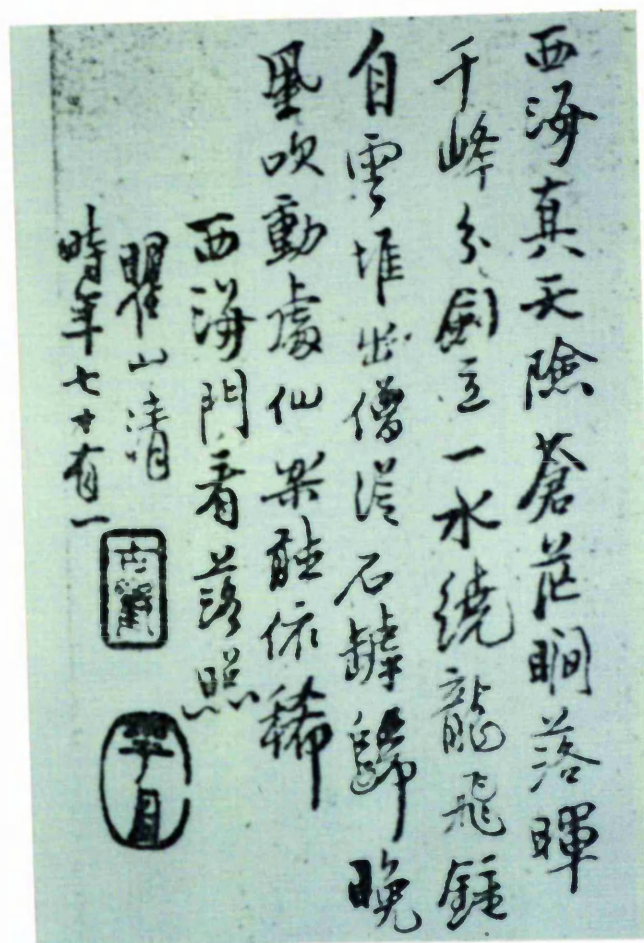 西海真天險蒼茫瞷落暉
千峰分劍立一水繞龍飛鍾
自雲堆出僧從石罅歸晚
風吹動處仙樂聽依稀
西海門看落照
瞿山清
時年七十有一